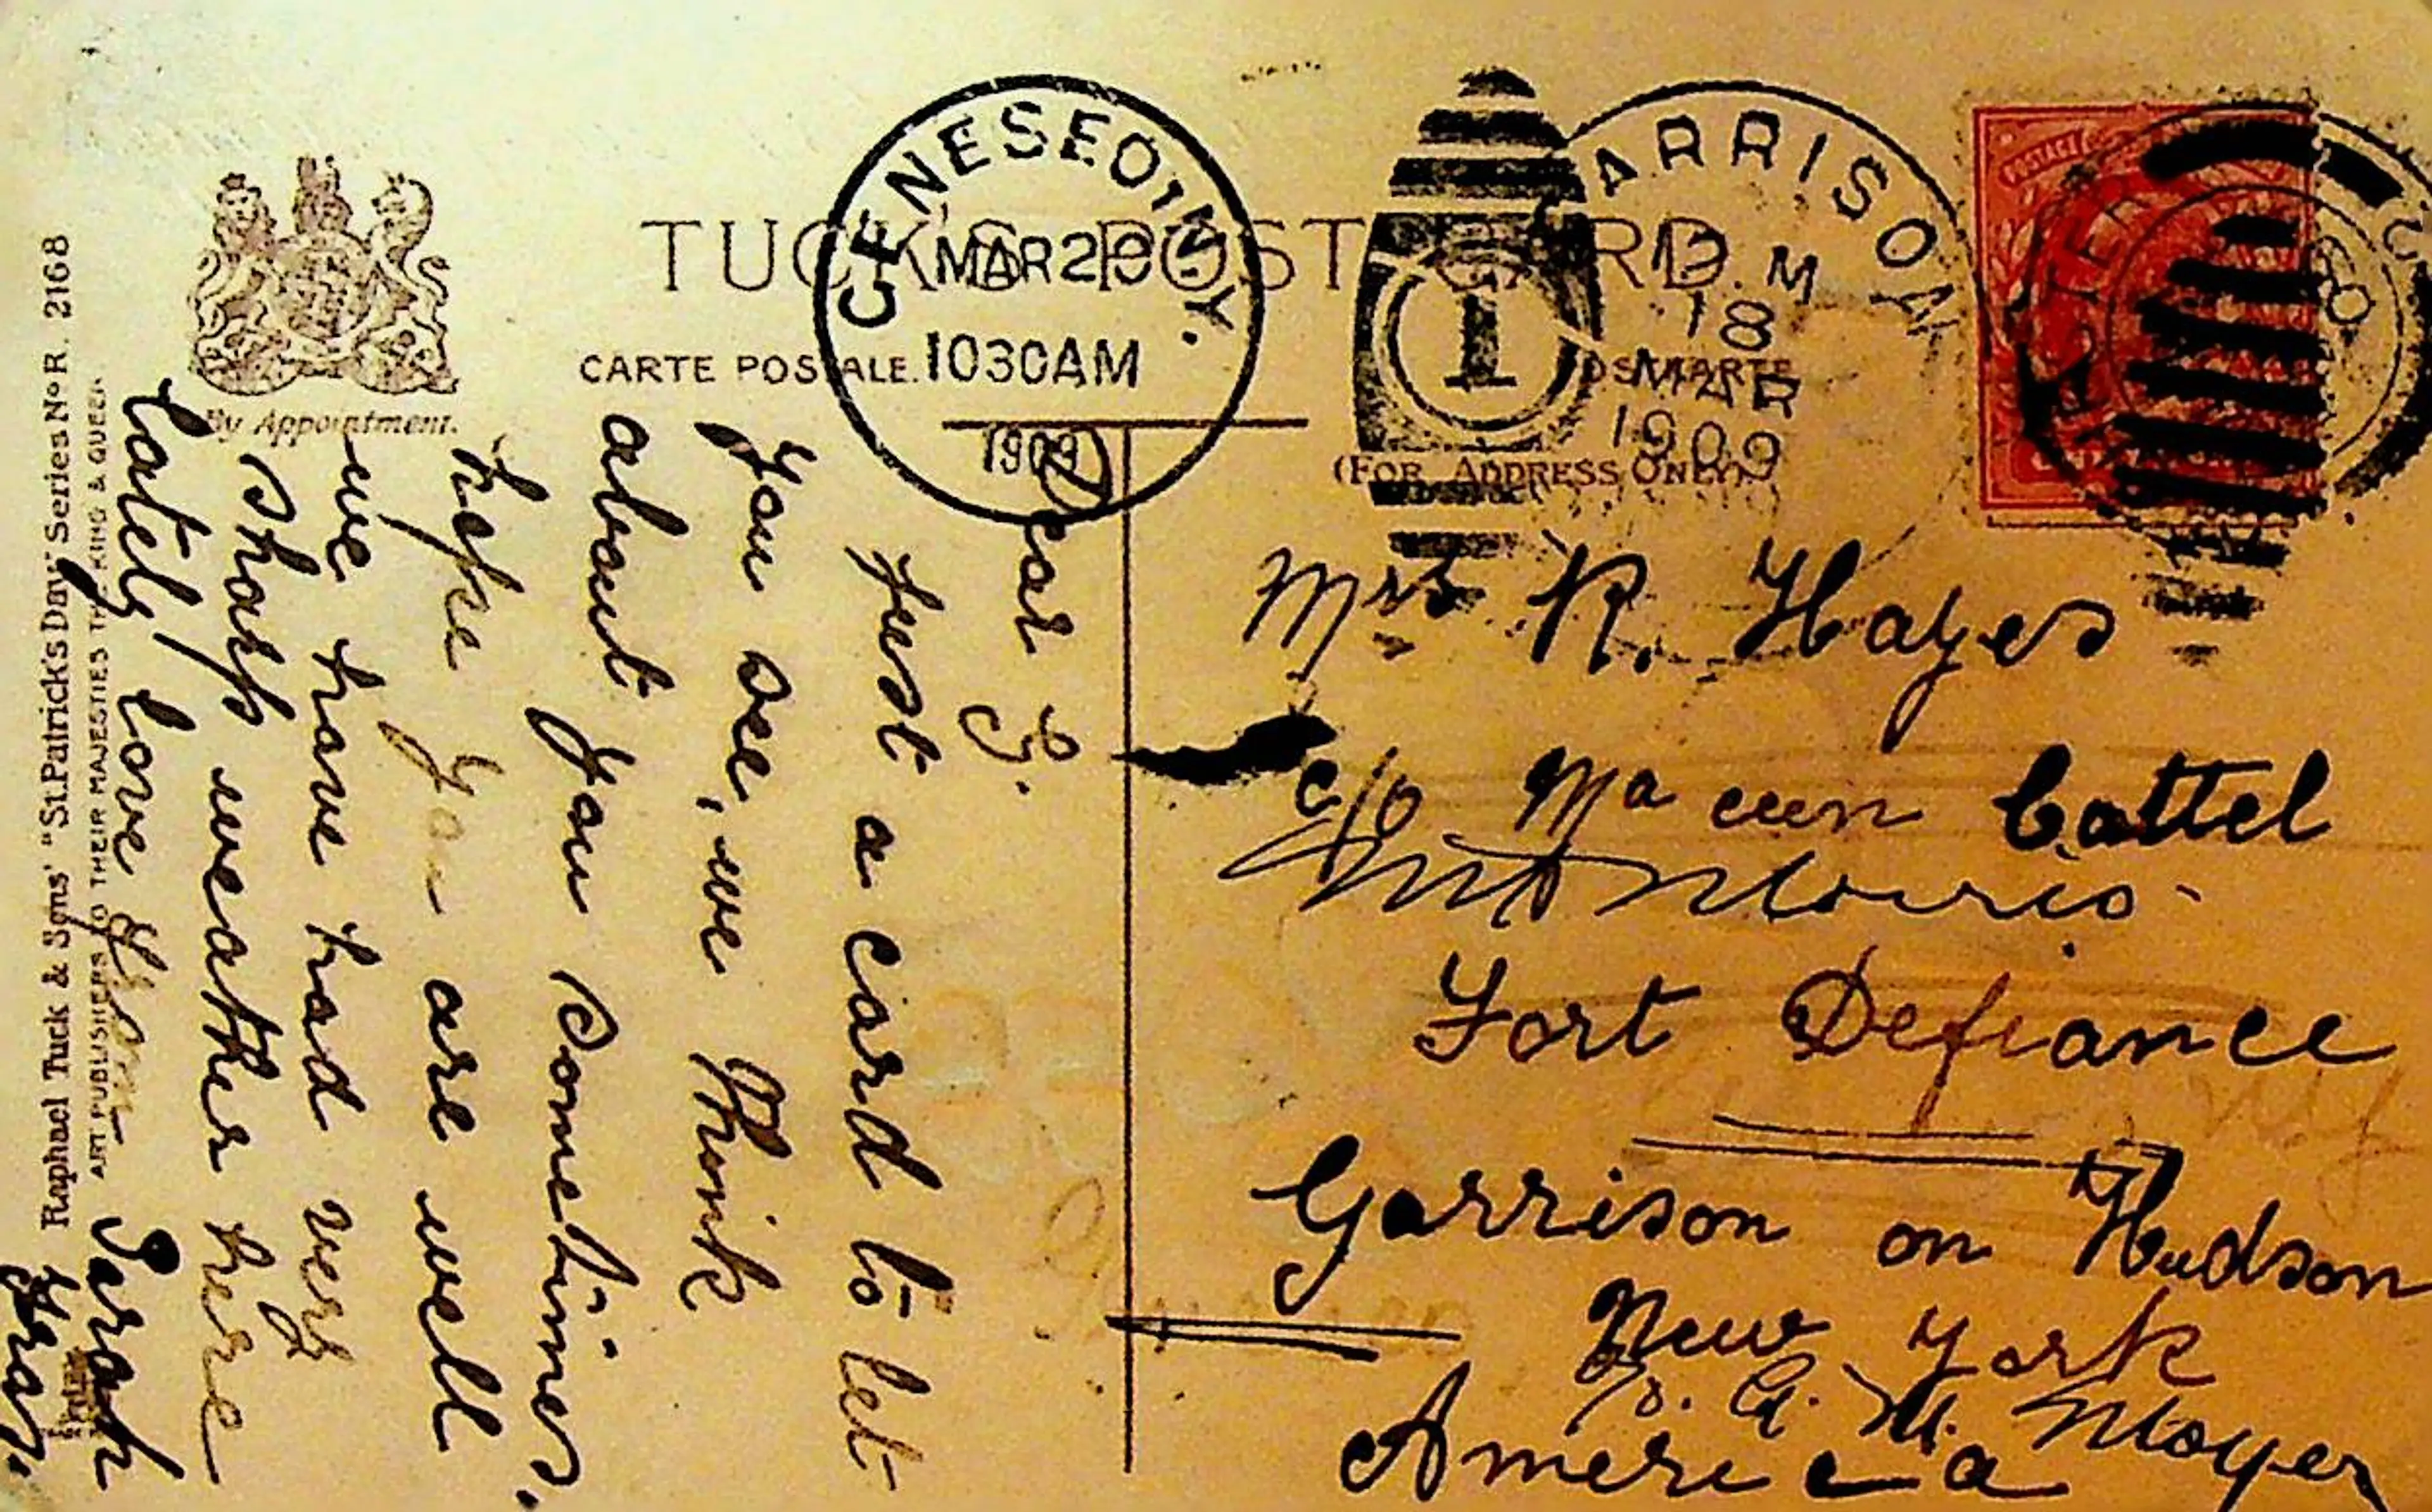 TUCK'S POST CARD
CARTE POSTALE.
(FOR ADDRESS ONLY)
By Appointment.
Raphael Tuck & Sons' "St. Patrick's Day" Series No R. 2168
ART PUBLISHERS TO THEIR MAJESTIES THE KING & QUEEN
GENESEO, N.Y.
MAR 29
1030AM
1909
GARRISON
M
18
MAR
1909
1
POSTAGE
Dear G.
Just a card to let
you see, we think
about you sometimes.
hope you are well
we have had very
sharp weather here
lately, love
Sarah
Mrs R. Hayes
c/o
Cattel
Mt Morris
Fort Defiance
Garrison on Hudson
New York
Moyer
America